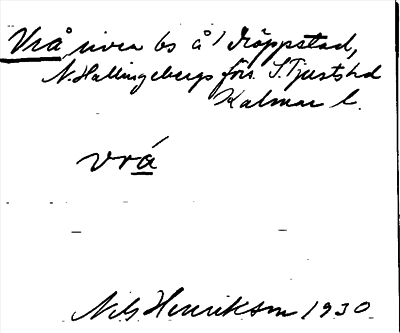 Vrå urven bs å 1 Dröppstad,
N. Hallingebergs förs S. Tjusts hd
Kalmar l.
vrá
Nils Henrikson 1930